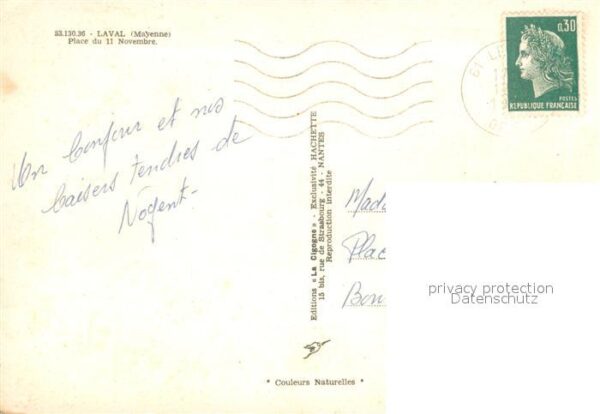 53.130.36 - LAVAL (Mayenne)
Place du 11 Novembre.
0,30
POSTES
REPUBLIQUE FRANÇAISE
61
Un bonjour et nos
baisers tendres de
Nogent-
Editions « La Cigogne » - Exclusivité HACHETTE
15 bis, rue de Strasbourg - 44 - NANTES
Reproduction interdite
Mad
Plac
Bon
privacy protection
Datenschutz
* Couleurs Naturelles *